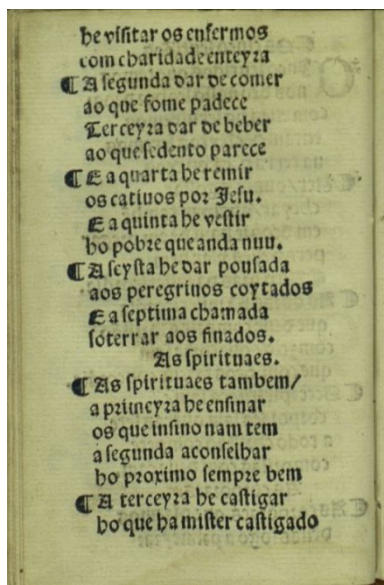 he visitar os enfermos
com charidade enteyra
¶ A segunda dar de comer
ao que fome padece
Terceyra dar de beber
ao que sedento parece
¶ E a quarta he remir
os catiuos por Jesu.
E a quinta he vestir
ho pobre que anda nuu.
¶ A seysta he dar pousada
aos peregrinos coytados
E a septima chamada
soterrar aos finados.
As spirituaes.
¶ As spirituaes tambem/
a primeyra he ensinar
os que insino nam tem
a segunda aconselhar
ho proximo sempre bem
¶ A terceyra he castigar
ho que ha mister castigado